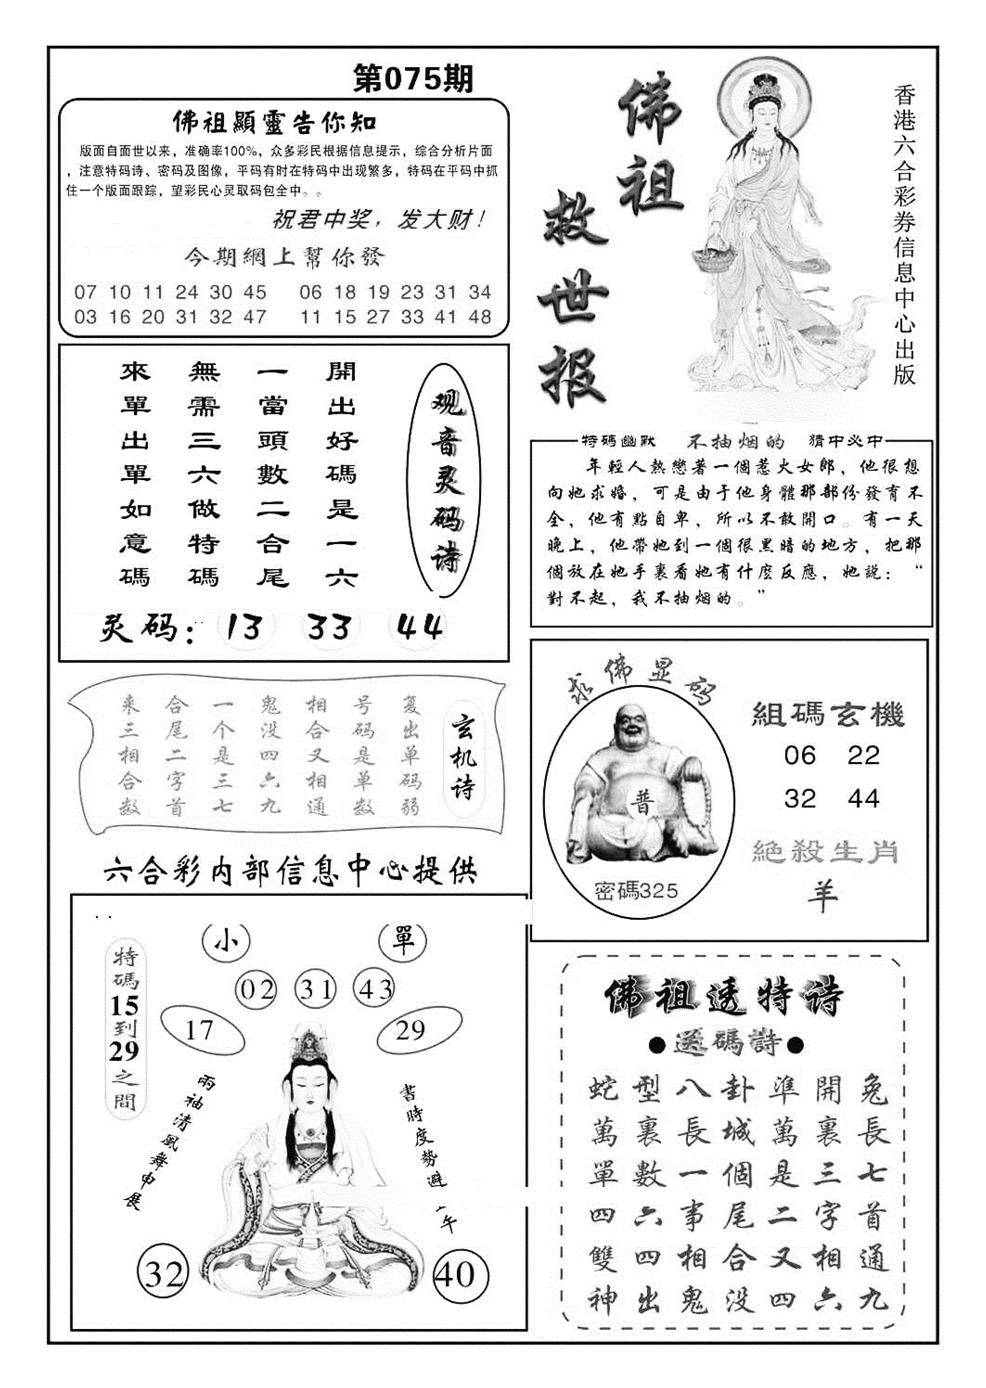 第075期
佛祖顯靈告你知
版面自面世以来，准确率100%，众多彩民根据信息提示，综合分析片面
，注意特码诗、密码及图像，平码有时在特码中出现繁多，特码在平码中抓
住一个版面跟踪，望彩民心灵取码包全中。。
祝君中奖，发大财！
今期網上幫你發
07 10 11 24 30 45 06 18 19 23 31 34
03 16 20 31 32 47 11 15 27 33 41 48
佛祖
救世报
香港六合彩券信息中心出版
观音灵码诗
開出好碼是一六
一當頭數二合尾
無需三六做特碼
來單出單如意碼
灵码：13 33 44
特碼幽默 不抽烟的 猜中必中
年輕人熱戀著一個惹火女郎，他很想
向她求婚，可是由于他身體那部份發育不
全，他有點自卑，所以不敢開口。有一天
晚上，他帶她到一個很黑暗的地方，把那
個放在她手裏看她有什麽反應，她説：“
對不起，我不抽烟的。”
玄机诗
复出单码弱
号码是单数
相合又相通
鬼没四六九
一个是三七
合尾二字首
来三相合数
求佛显码
普
密碼325
組碼玄機
06 22
32 44
絶殺生肖
羊
六合彩内部信息中心提供
小 單
02 31 43
17 29
特碼15到29之間
兩袖清風舞申展
書時度勢避
午
32 40
佛祖透特诗
●送碼詩●
蛇型八卦準開兔
萬裏長城萬裏長
單數一個是三七
四六事尾二字首
雙四相合又相通
神出鬼没四六九